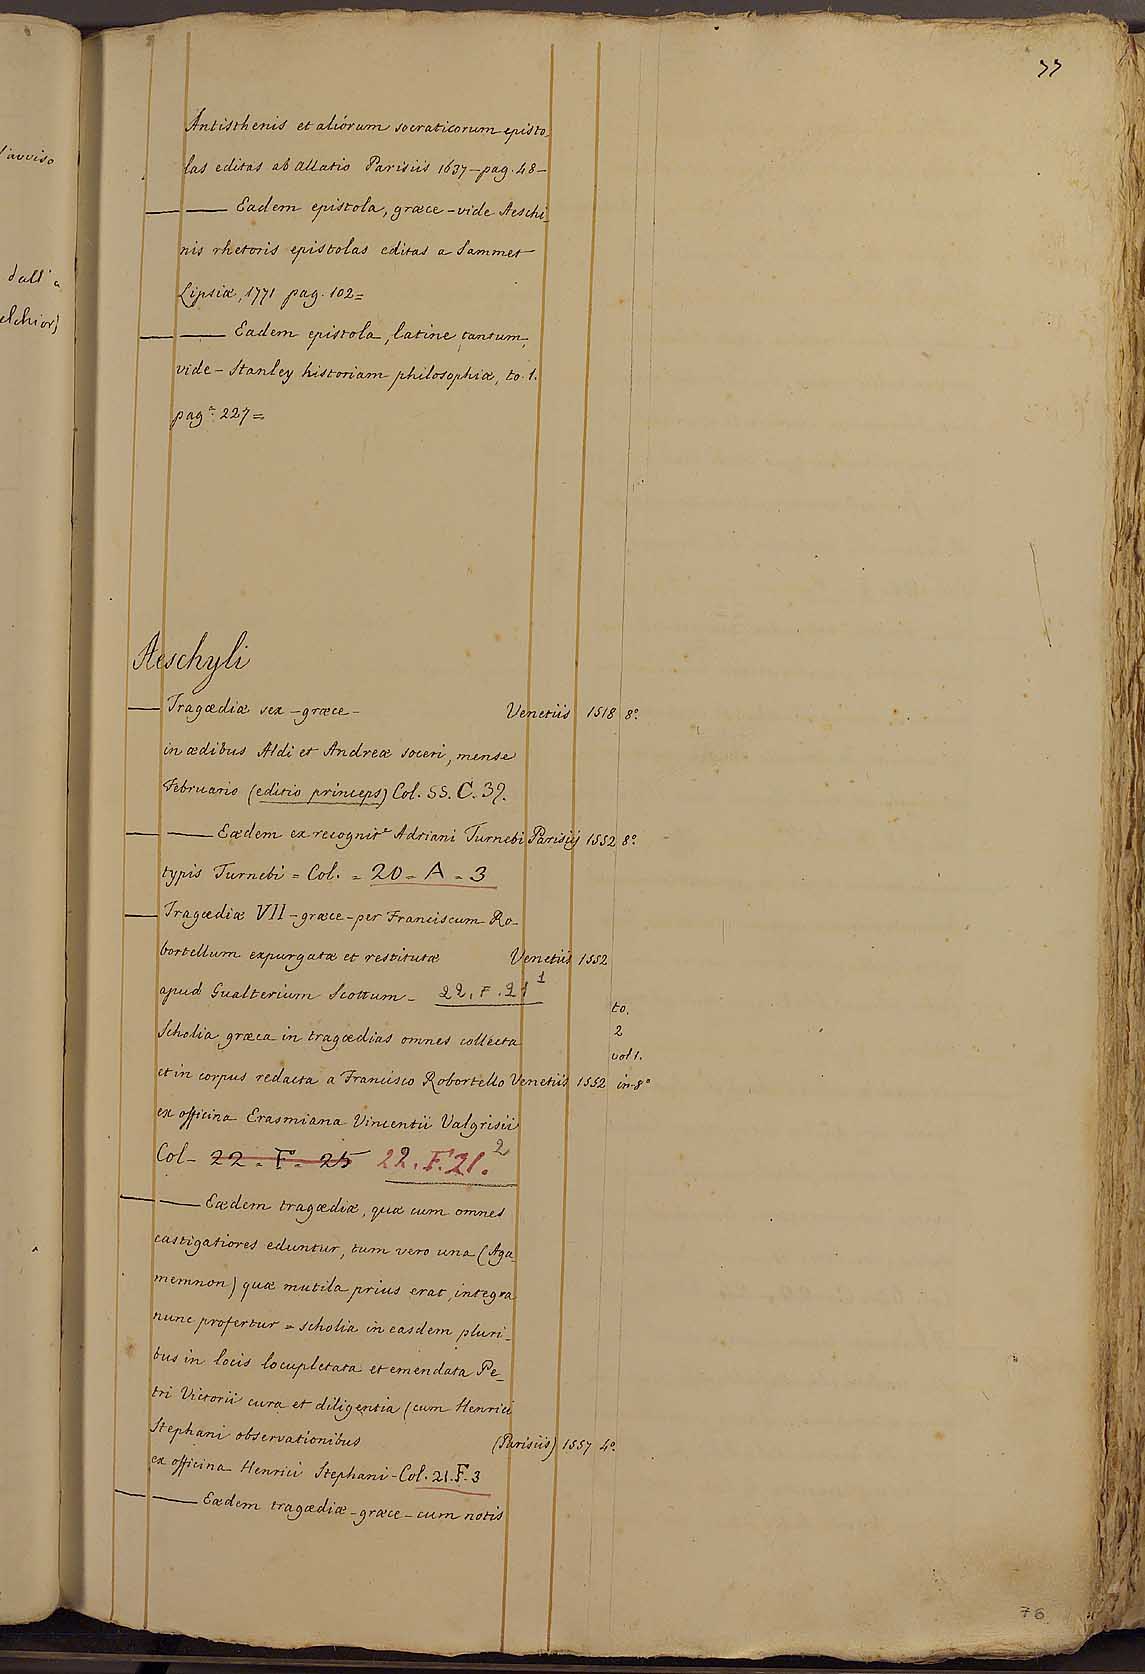 77
l'avviso
dall'a
elchior)
Antisthenis et aliorum socraticorum episto
las editas ab Allatio Parisiis 1637 – pag. 48 –
— — Eadem epistola, græce – vide Aeschi_
nis rhetoris epistolas editas a Sammet
Lipsiæ, 1771 pag. 102 =
— — Eadem epistola, latine tantum,
vide – Stanley historiam philosophiæ, to. 1.
pagª 227 =
Aeschyli
— Tragœdiæ sex – græce – Venetiis 1518 8º
in ædibus Aldi et Andreæ soceri, mense
Februario (editio princeps) Col. SS. C. 39.
— — Eædem ex recognitᵉ Adriani Turnebi Parisijs 1552 8º
typis Turnebi = Col. = 20 - A - 3
— Tragœdiæ VII – græce – per Franciscum Ro_
bortellum expurgatæ et restitutæ Venetiis 1552
apud Gualterium Scottum – 22. F. 21 1
to.
Scholia græca in tragœdias omnes collecta 2
vol 1.
et in corpus redacta a Francisco Robortello Venetiis 1552 in-8º
ex officina Erasmiana Vincentii Valgrisii
Col – 22 - F - 25 22. F. 21. 2
— — Eædem tragœdiæ, quæ cum omnes
castigatiores eduntur, tum vero una (Aga_
memnon) quæ mutila prius erat, integra
nunc profertur = scholia in easdem pluri_
bus in locis locupletata et emendata Pe_
tri Victorii cura et diligentia (cum Henrici
Stephani observationibus (Parisiis) 1557 4º
ex officina Henrici Stephani – Col. 21. F. 3
— — Eædem tragœdiæ – græce – cum notis
76